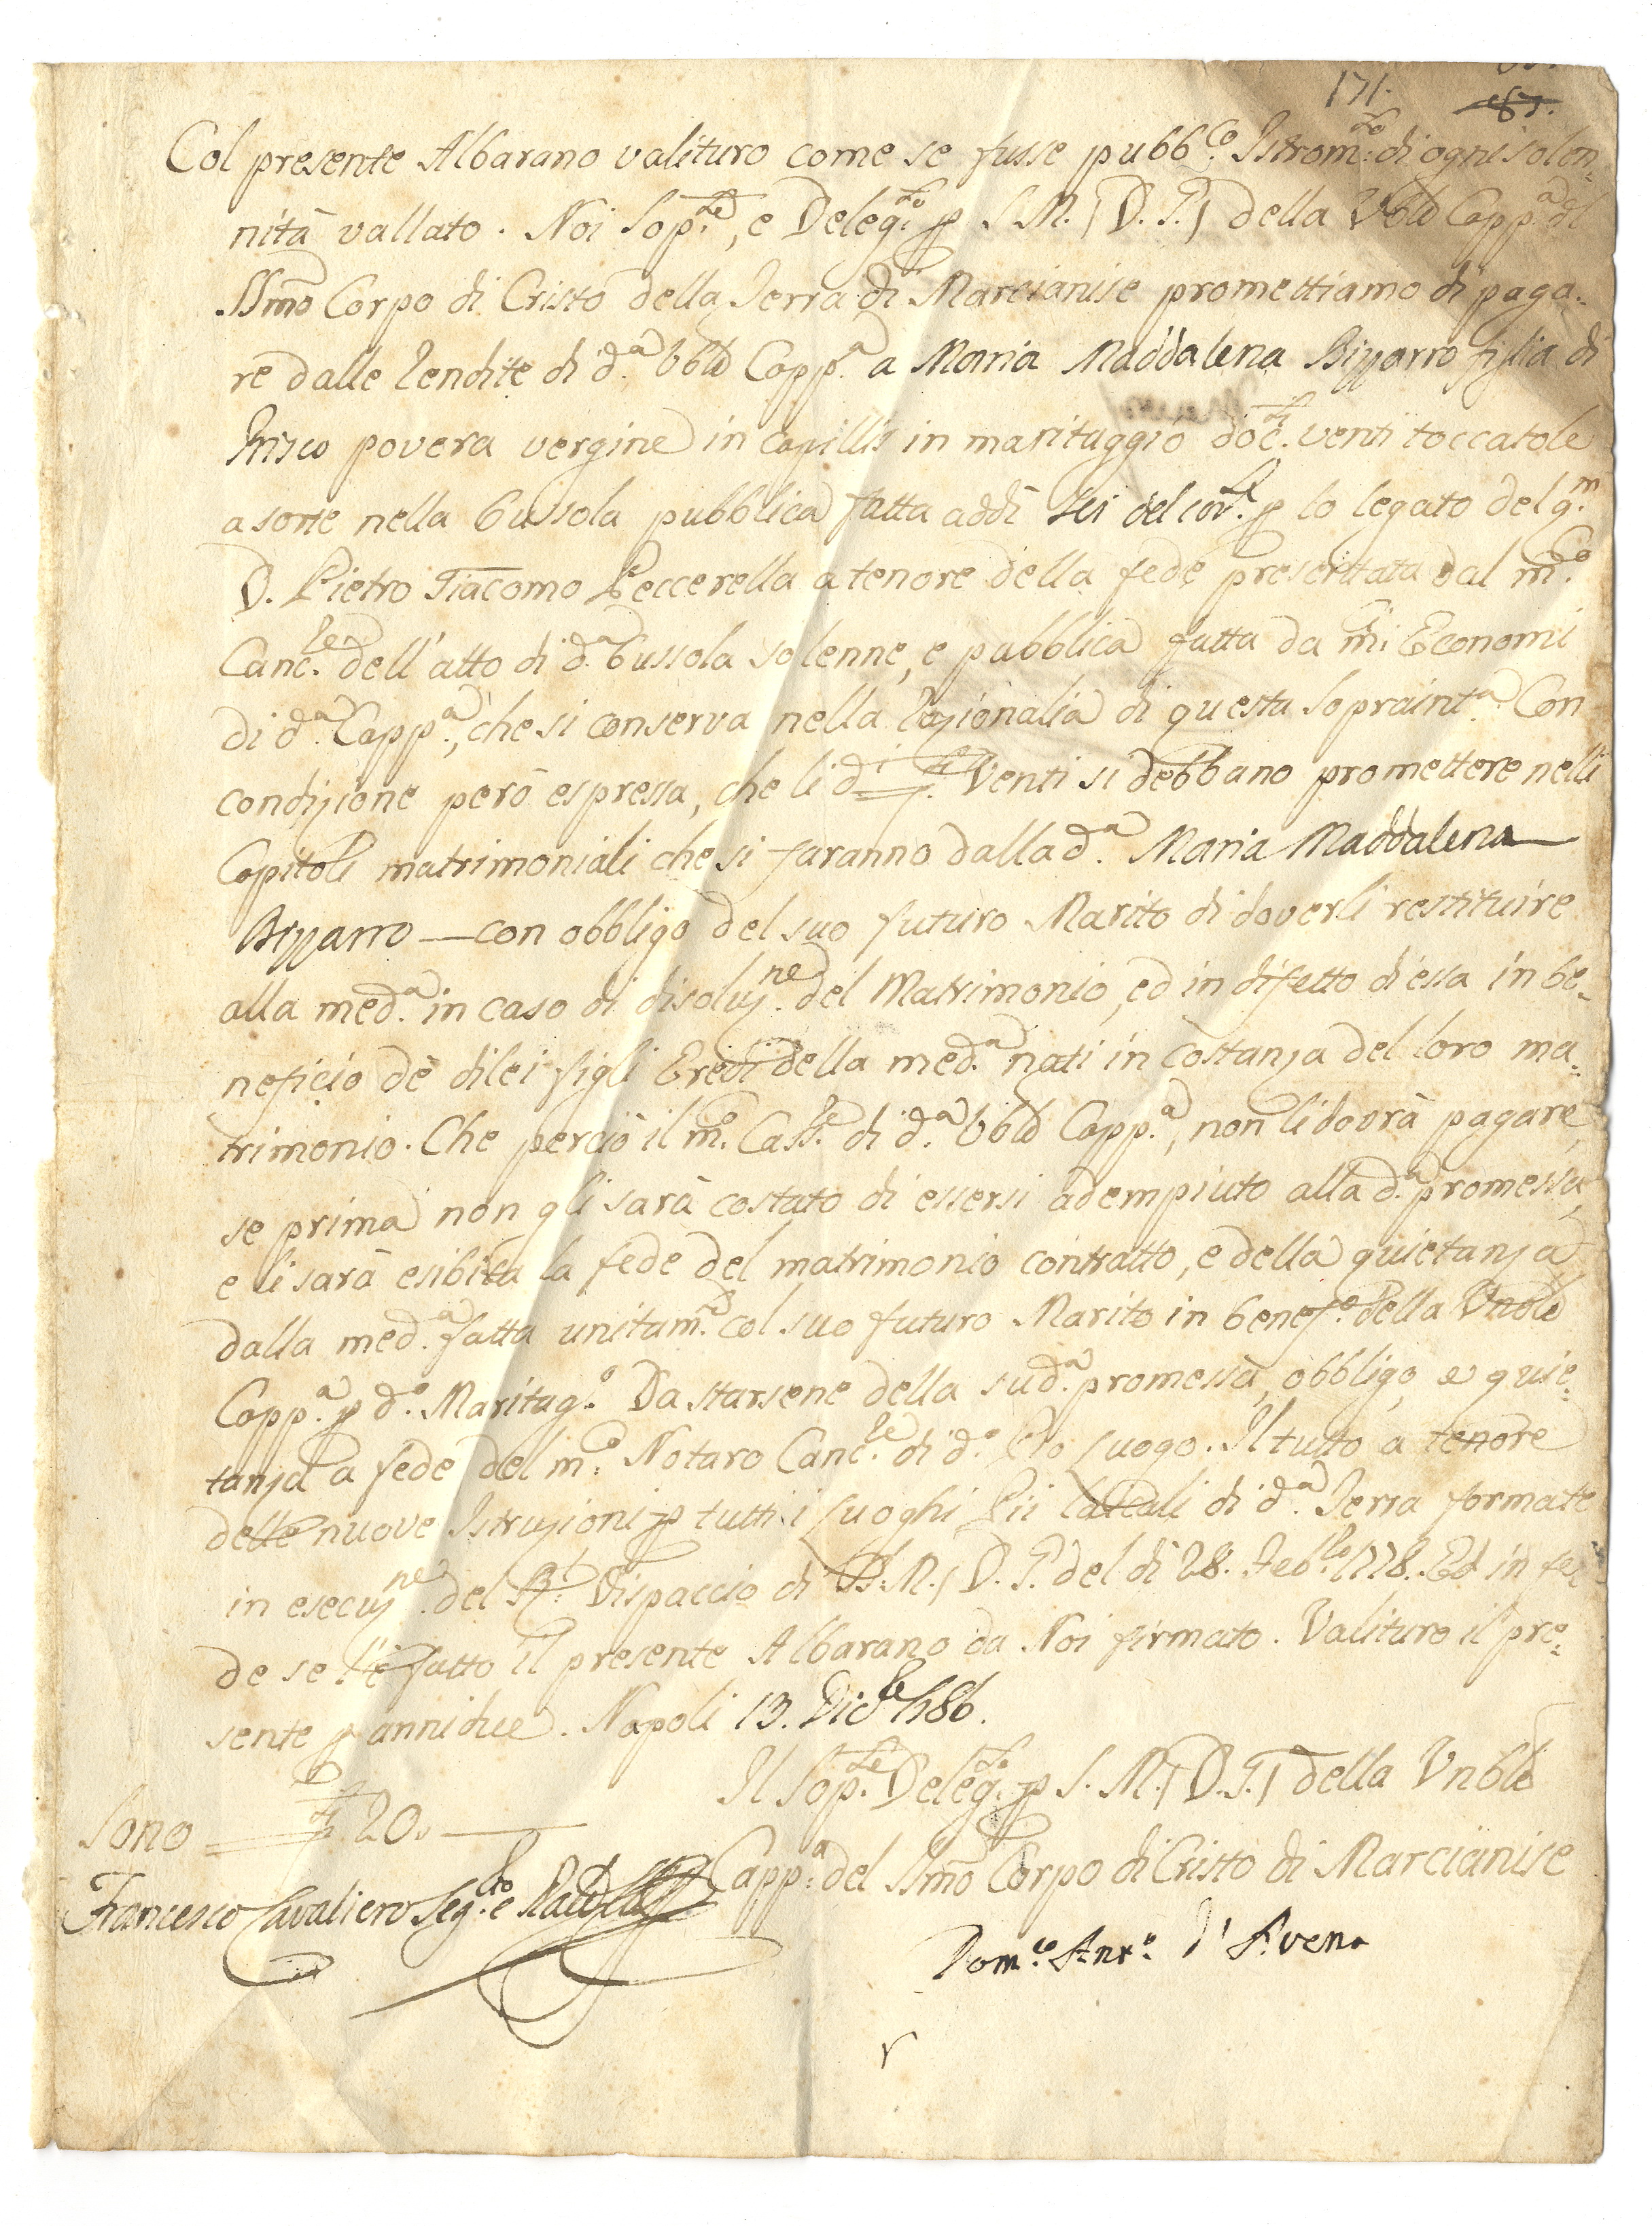 171.
87.
Col presente Albarano valituro come se fusse pubb.co Istrom.to di ogni solen-
nità vallato. Noi Sop.te, e Deleg.to p S. M. (D. G.) della Vble Capp.a del
SSmo Corpo di Cristo della Terra di Marcianise promettiamo di paga-
re dalle rendite di d.a Vble Capp.a a Maria Maddalena Bizzarro figlia di
Prisco povera vergine in capillis in maritaggio doc.ti venti toccatole
a sorte nella bussola pubblica fatta addì sei del cor.te p lo legato del q.m
D. Pietro Giacomo Peccerella a tenore della fede presentata dal m.co
Canc.re dell'atto di d.a bussola solenne, e pubblica fatta da m.i Economi
di d.a Capp.a, che si conserva nella razionalia di questa sopraint.a Con
condizione però espressa, che li d.i Venti si debbano promettere nelli
Capitoli matrimoniali che si faranno dalla d.a Maria Maddalena
Bizzarro con obbligo del suo futuro Marito di doverli restituire
alla med.a in caso di disoluz.ne del Matrimonio, ed in difetto di essa in be-
neficio dè di lei figli Eredi della med.a nati in costanza del loro ma-
trimonio. Che perciò il m.o Cass.re di d.a Vble Capp.a, non li dovrà pagare,
se prima non gli sarà costato di essersi adempiuto alla d.a promessa,
e li sarà esibita la fede del matrimonio contratto, e della quietanza
dalla med.a fatta unitam.te col suo futuro Marito in benef.o della Vnble
Capp.a p d.o Maritag.o Da starsene della sud.a promessa, obbligo, e quie-
tanza a fede del m.o Notaro Canc.re di d.o Pio Luogo. Il tutto a tenore
delle nuove Istruzioni p tutti i Luoghi Pii laicali di d.a Terra formate
in esecuz.ne del R.l Dispaccio di S. M. (D. G. del dì 28. Feb.ro 1778. Ed in fe-
de se l'è fatto il presente Albarano da Noi firmato. Valituro il pre-
sente p anni due. Napoli 13. Dic.bre 1786.
Il Sop.te Deleg.to p S. M. (D. G.) della Vnble
Sono 20.
Capp.a del SSmo Corpo di Cristo di Marcianise
Francesco Cavaliero Seg.rio e
Dom.co Ant.o d'Avena